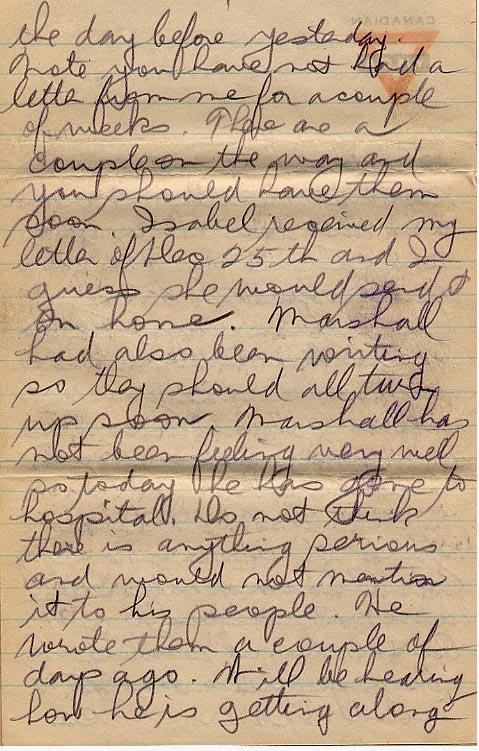 the day before yesterday.
Note you have not had a
letter from me for a couple
of weeks. There are a
couple on the way and
you should have them
soon. Isabel received my
letter of Dec 25th and I
guess she would send it
on home. Marshall
had also been writing
so they should all turn
up soon. Marshall has
not been feeling very well
so today he has gone to
hospital. Do not think
there is anything serious
and would not mention
it to his people. He
wrote them a couple of
days ago. Will be hearing
how he is getting along
CANADIAN